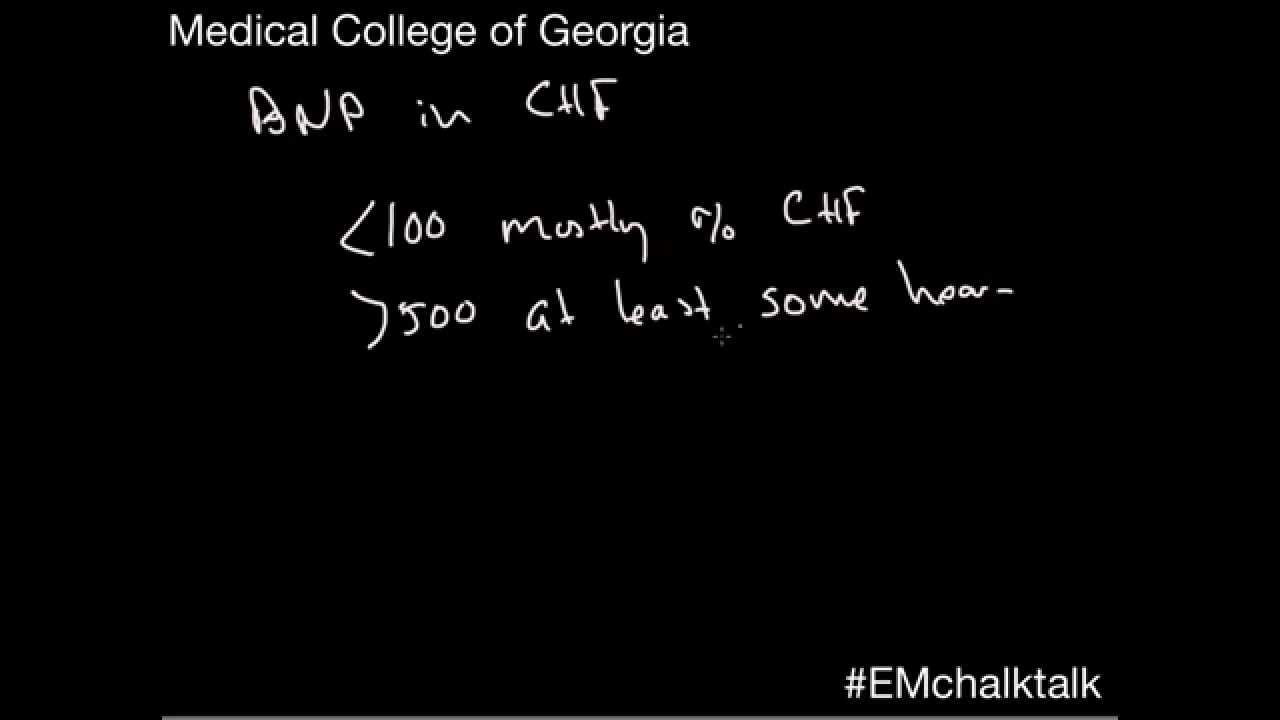 Medical College of Georgia
BNP in CHF
<100 mostly % CHF
>500 at least some hear-
#EMchalktalk